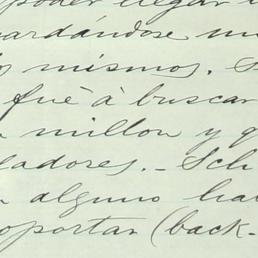 poder llegar
ardándose
mismos. S
fué à buscar
millon y q
ladores. - Sch
alguno ha
oportar (back-